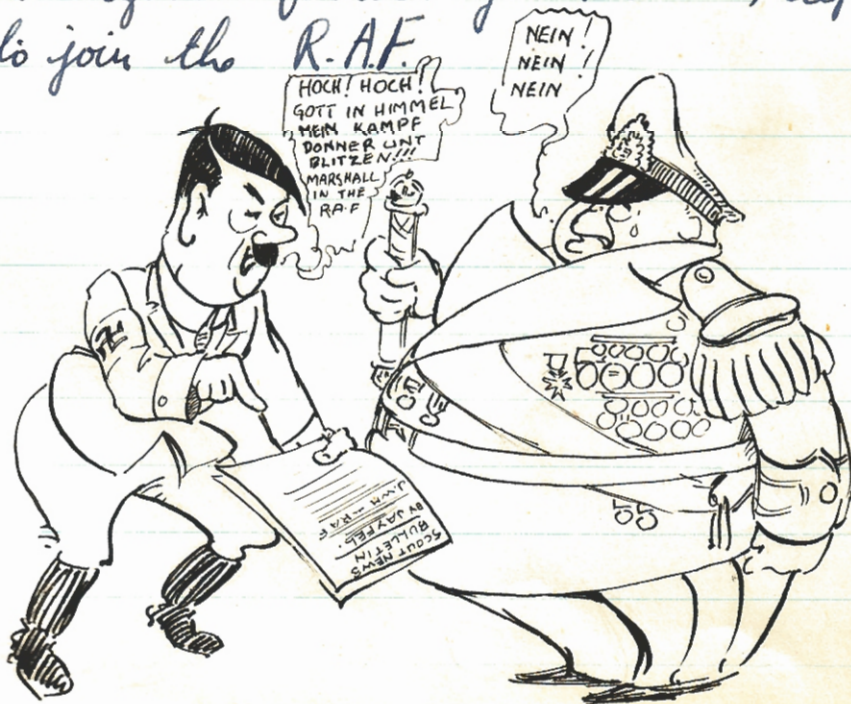 to join the R.A.F.
HOCH! HOCH!!
GOTT IN HIMMEL
MEIN KAMPF
DONNER UNT
BLITZEN!!!
MARSHALL
IN THE
R.A.F
NEIN!
NEIN!
NEIN
SCOUT NEWS
BULLETIN
BY
R.A.F